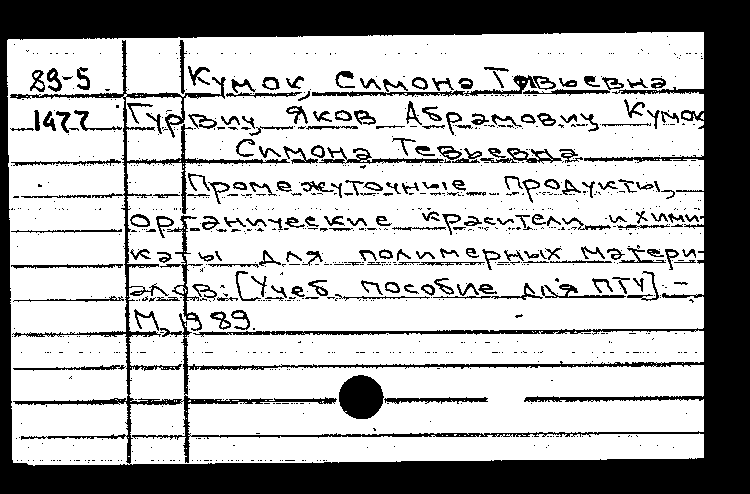 89-5 Кумок, Симона Тевьевна.
1477 Гурвич, Яков Абрамович, Кумок,
Симона Тевьевна
Промежуточные продукты,
органические красители и хими-
каты для полимерных матери-
алов: [Учеб. пособие для ПТУ]. -
М., 1989.